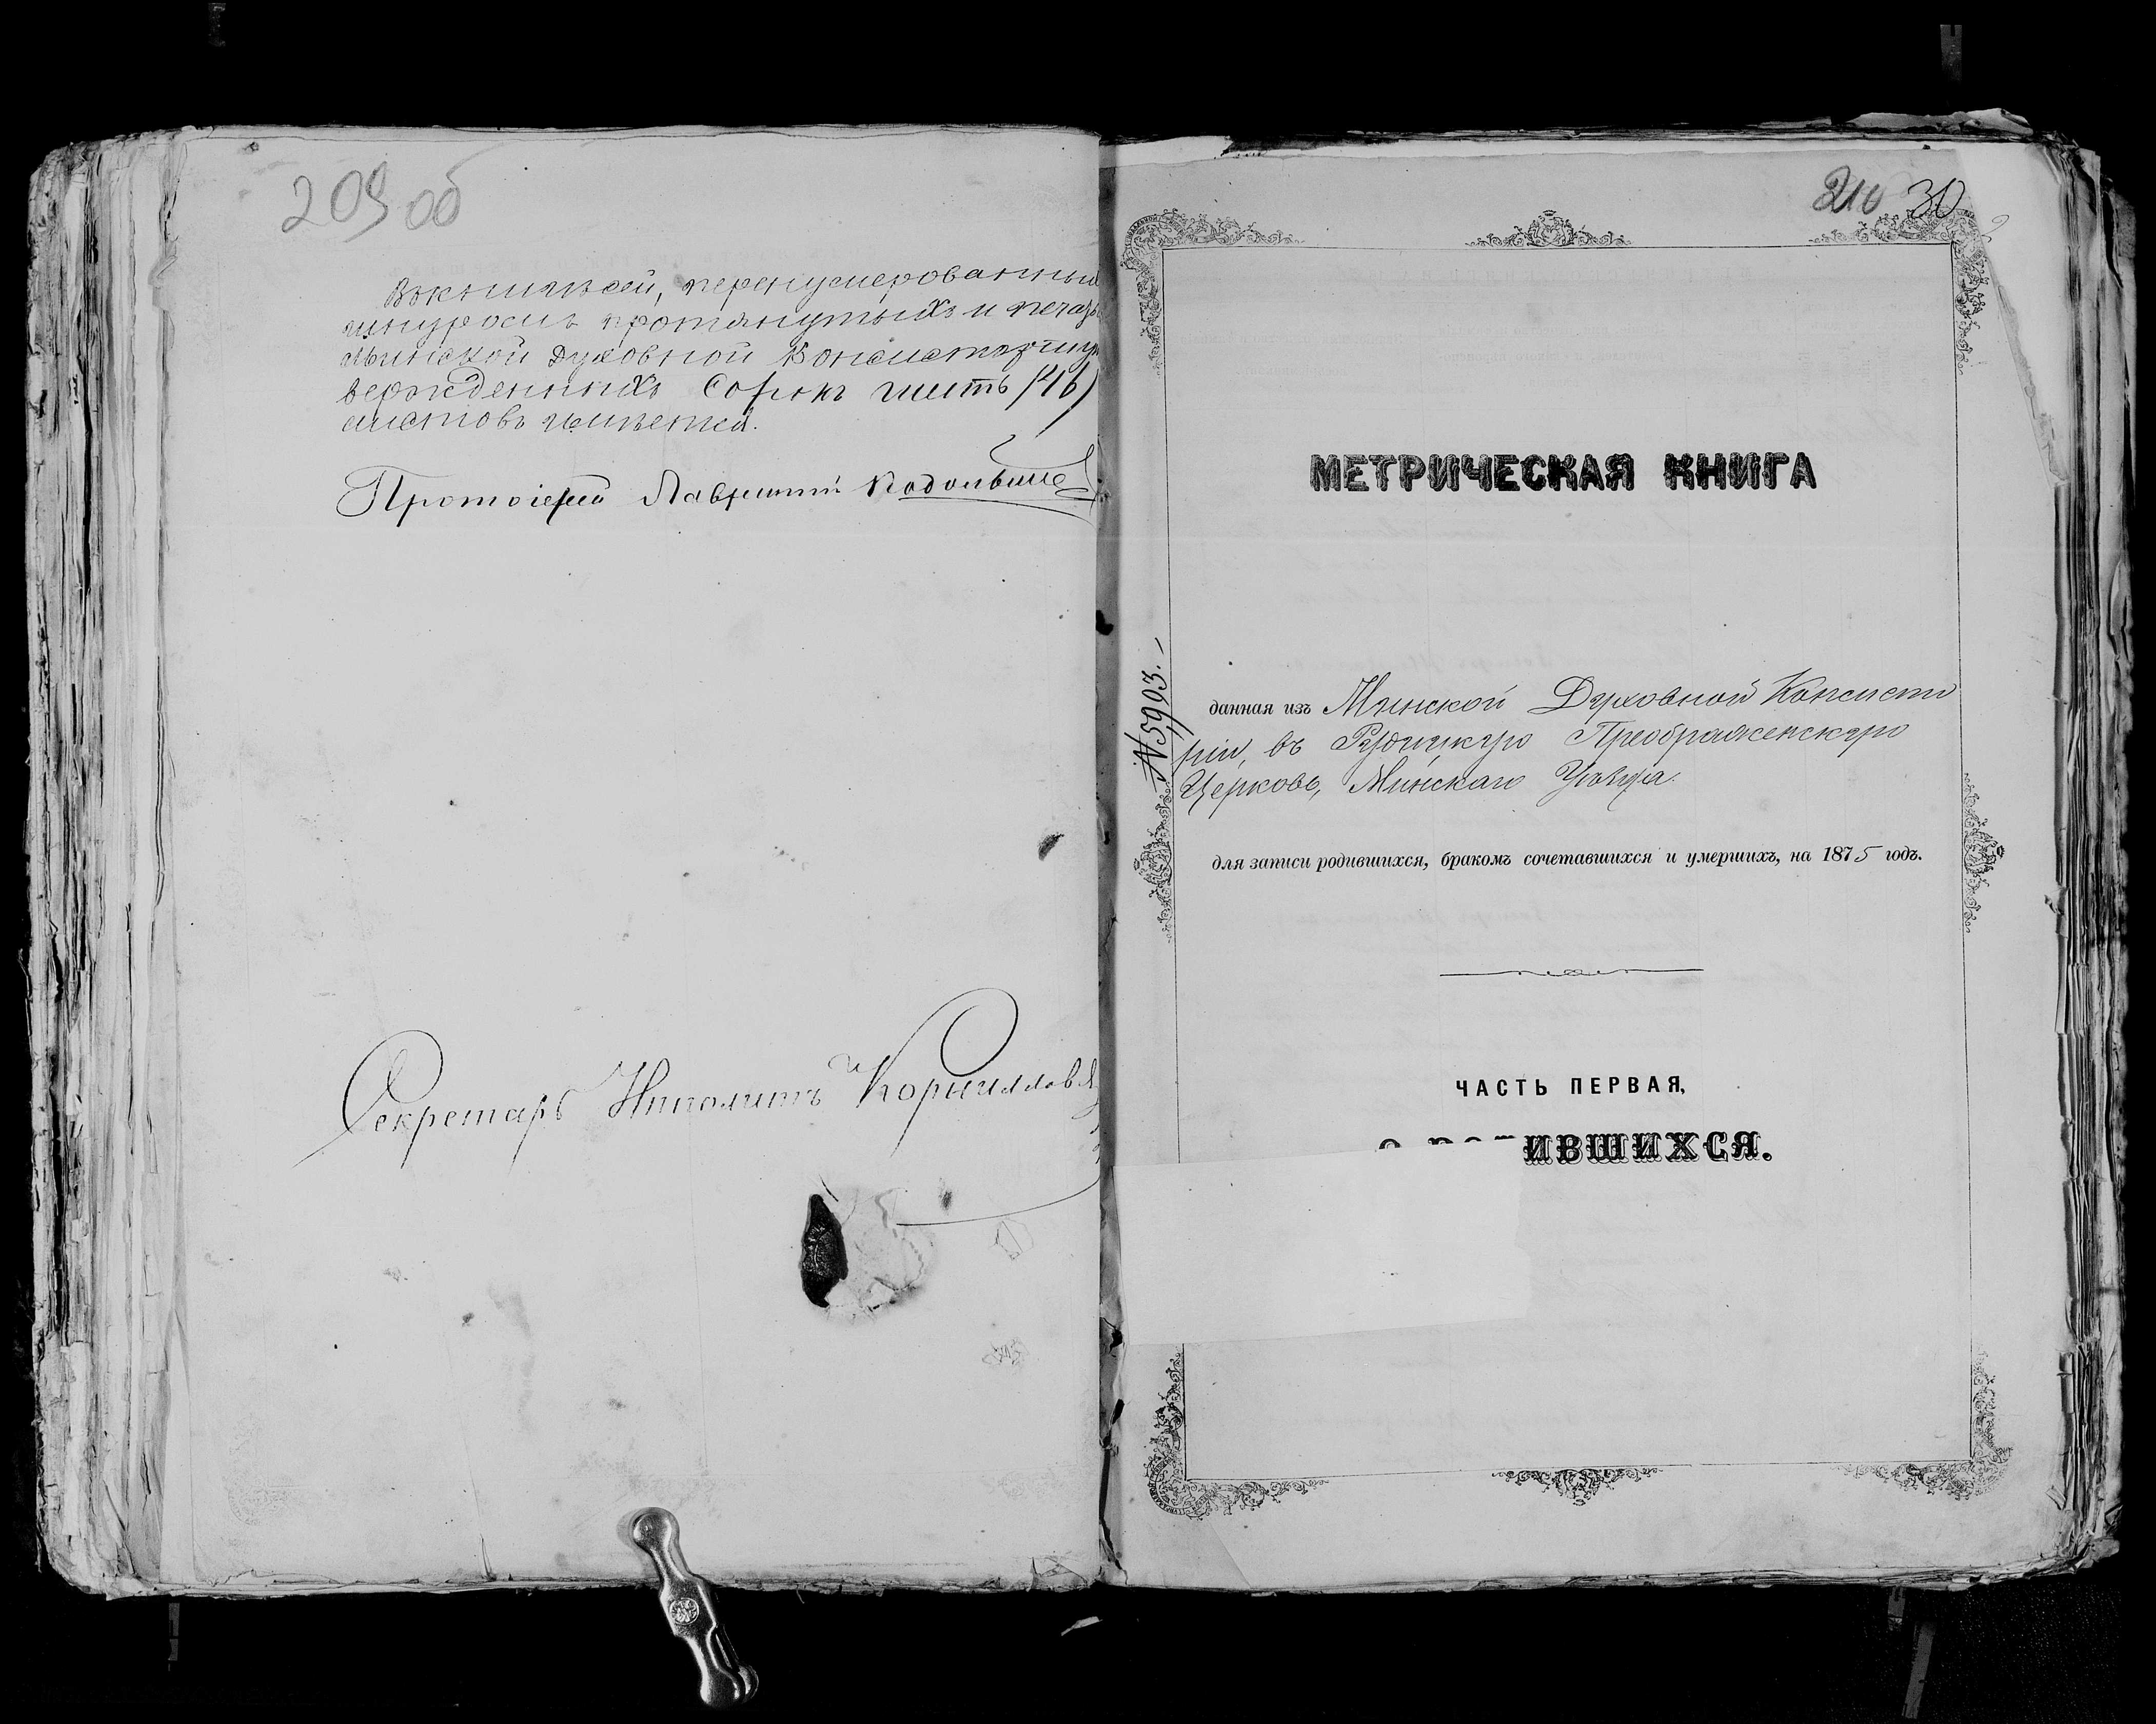 209 об
Въ книгѣ сей, перенумерованныхъ
шнуромъ протянутыхъ и печатью
Минской Духовной Консисторіи ут
вержденныхъ Сорокъ шесть (46)
листовъ имѣется.
Протоіерей Лаврентій
Секретарь Ипполитъ
210 30
МЕТРИЧЕСКАЯ КНИГА
№ 5903.
данная изъ Минской Духовной Консисто
ріи, въ Рудицкую Преображенскую
Церковь, Минскаго Уѣзда.
для записи родившихся, бракомъ сочетавшихся и умершихъ, на 1875 годъ.
ЧАСТЬ ПЕРВАЯ,
О РОДИВШИХСЯ.